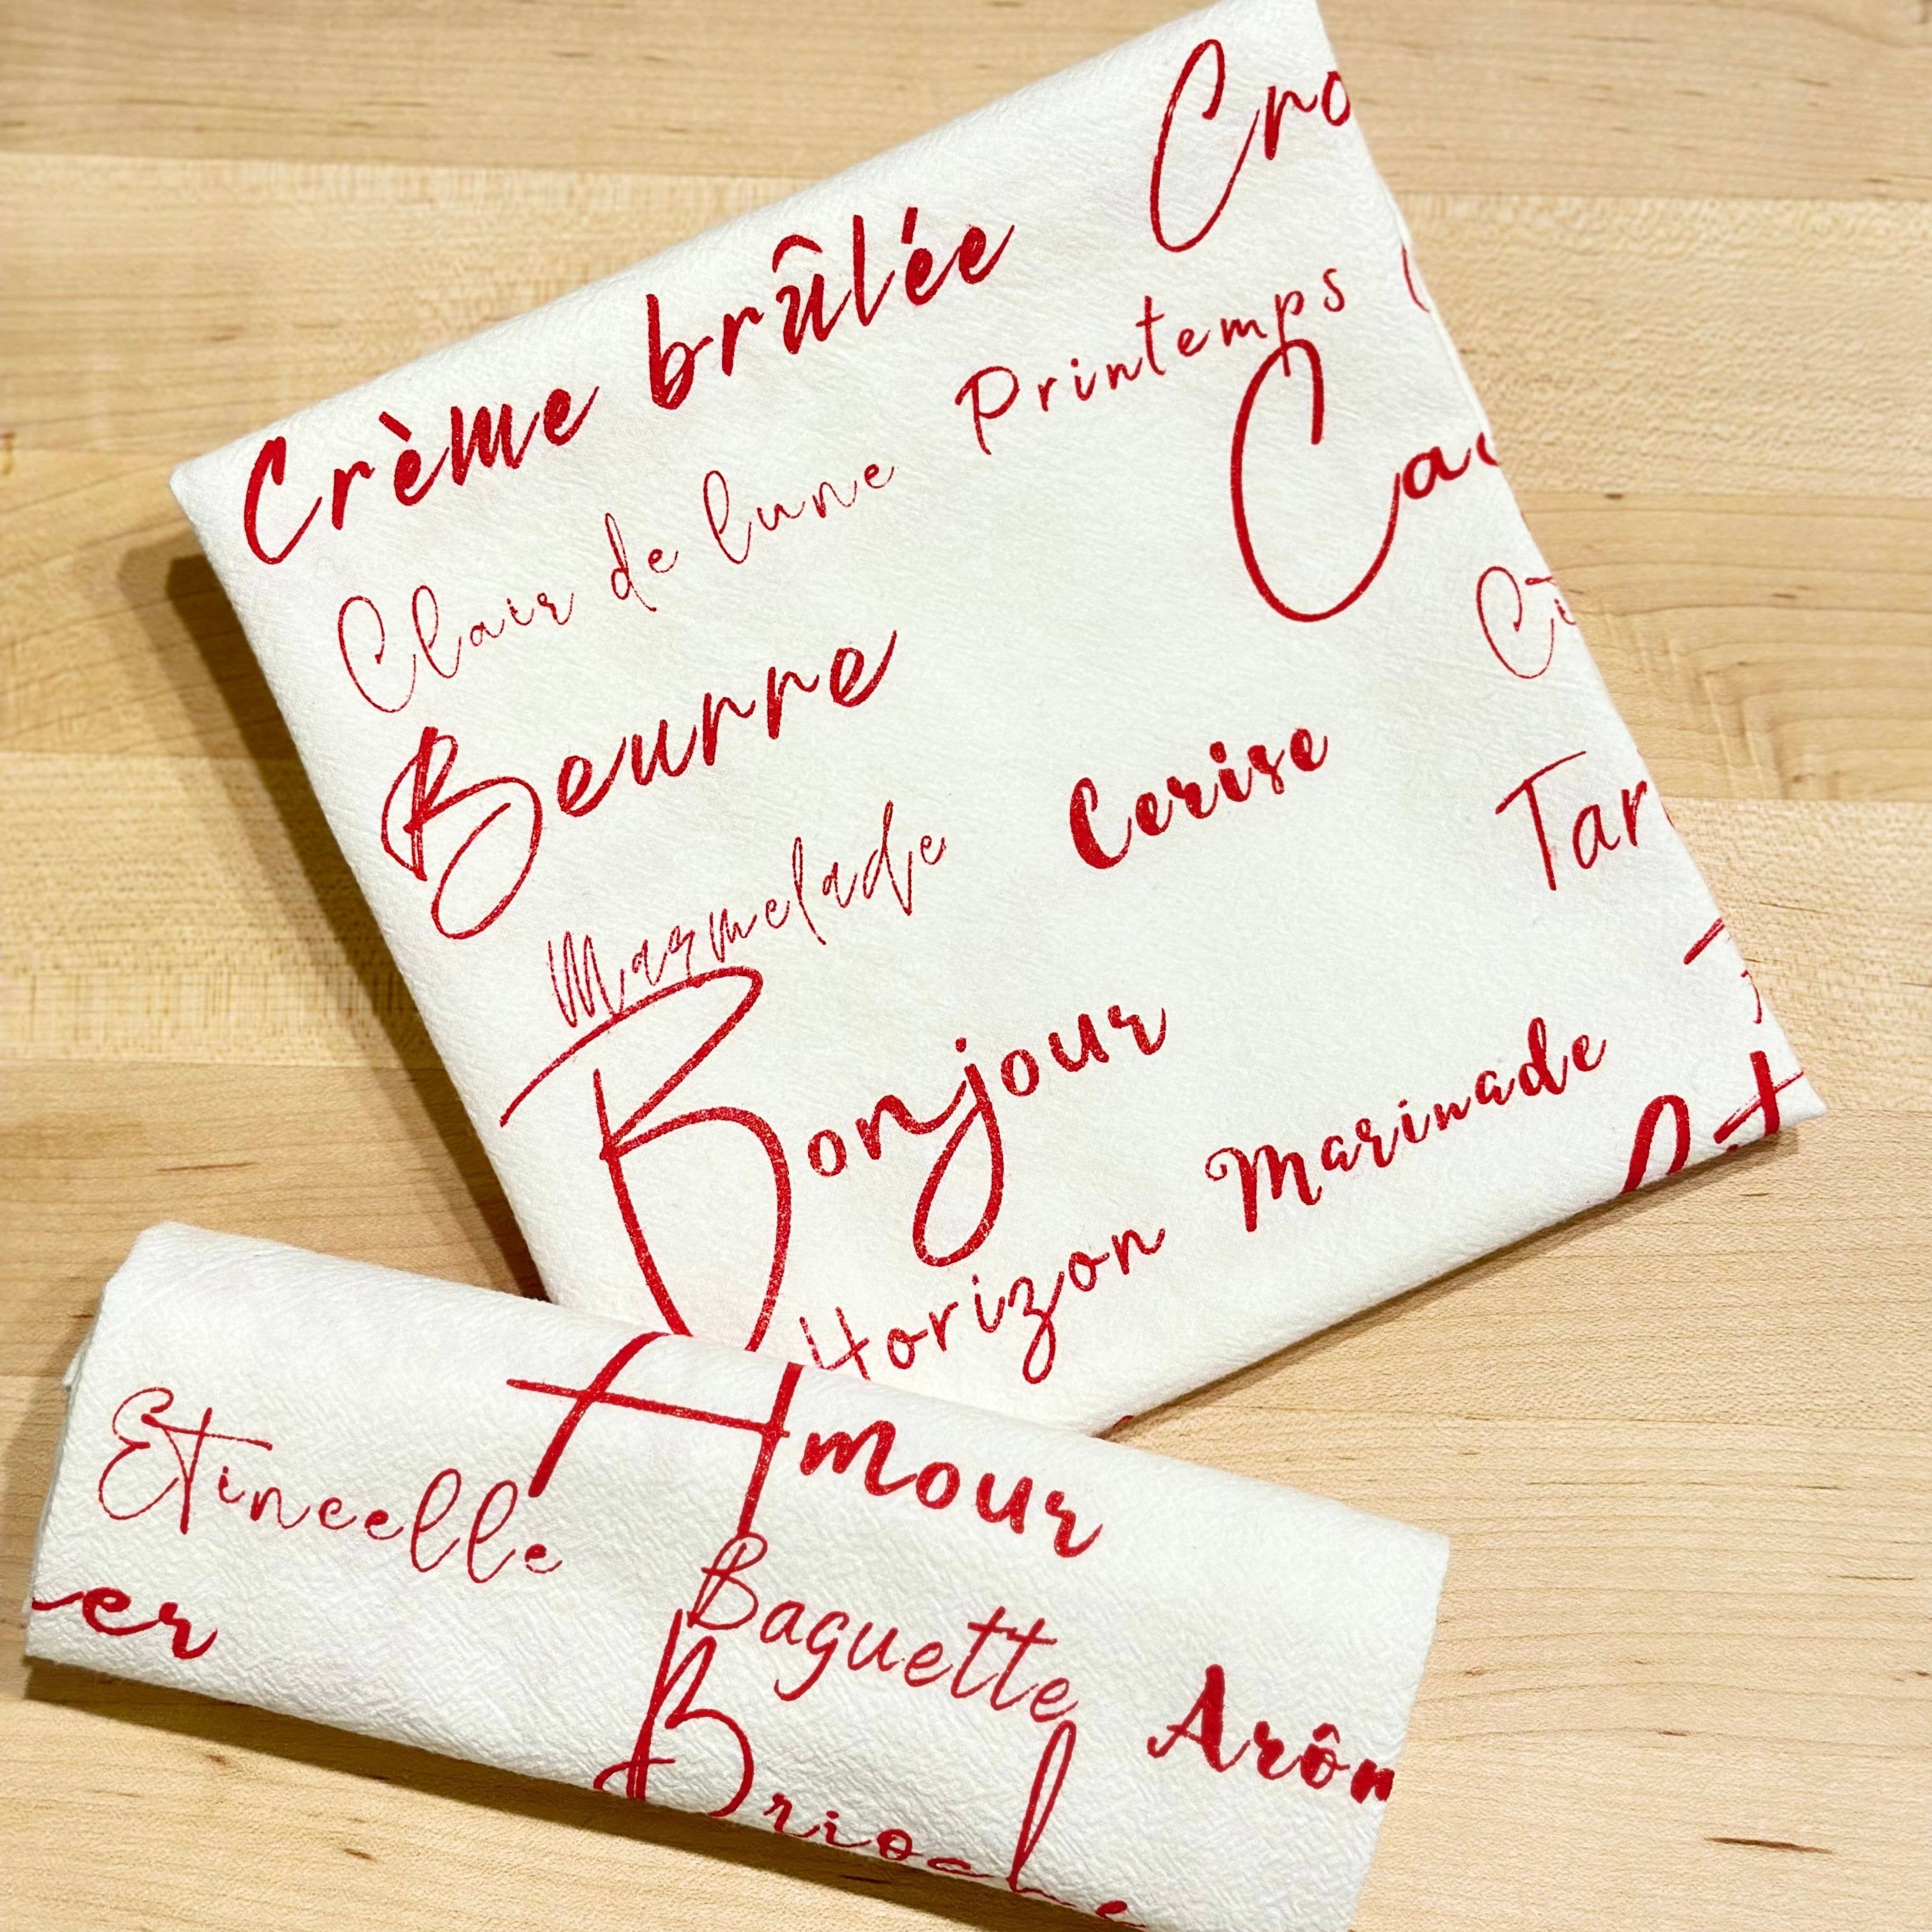 Cro
Crème brûlée
Printemps
Clair de lune
Ca
Beurre
Ci
Cerise
Tar
Marmelade
Bonjour
Marinade
Horizon
Amour
Etincelle
Baguette
er
Arôm
Brioche